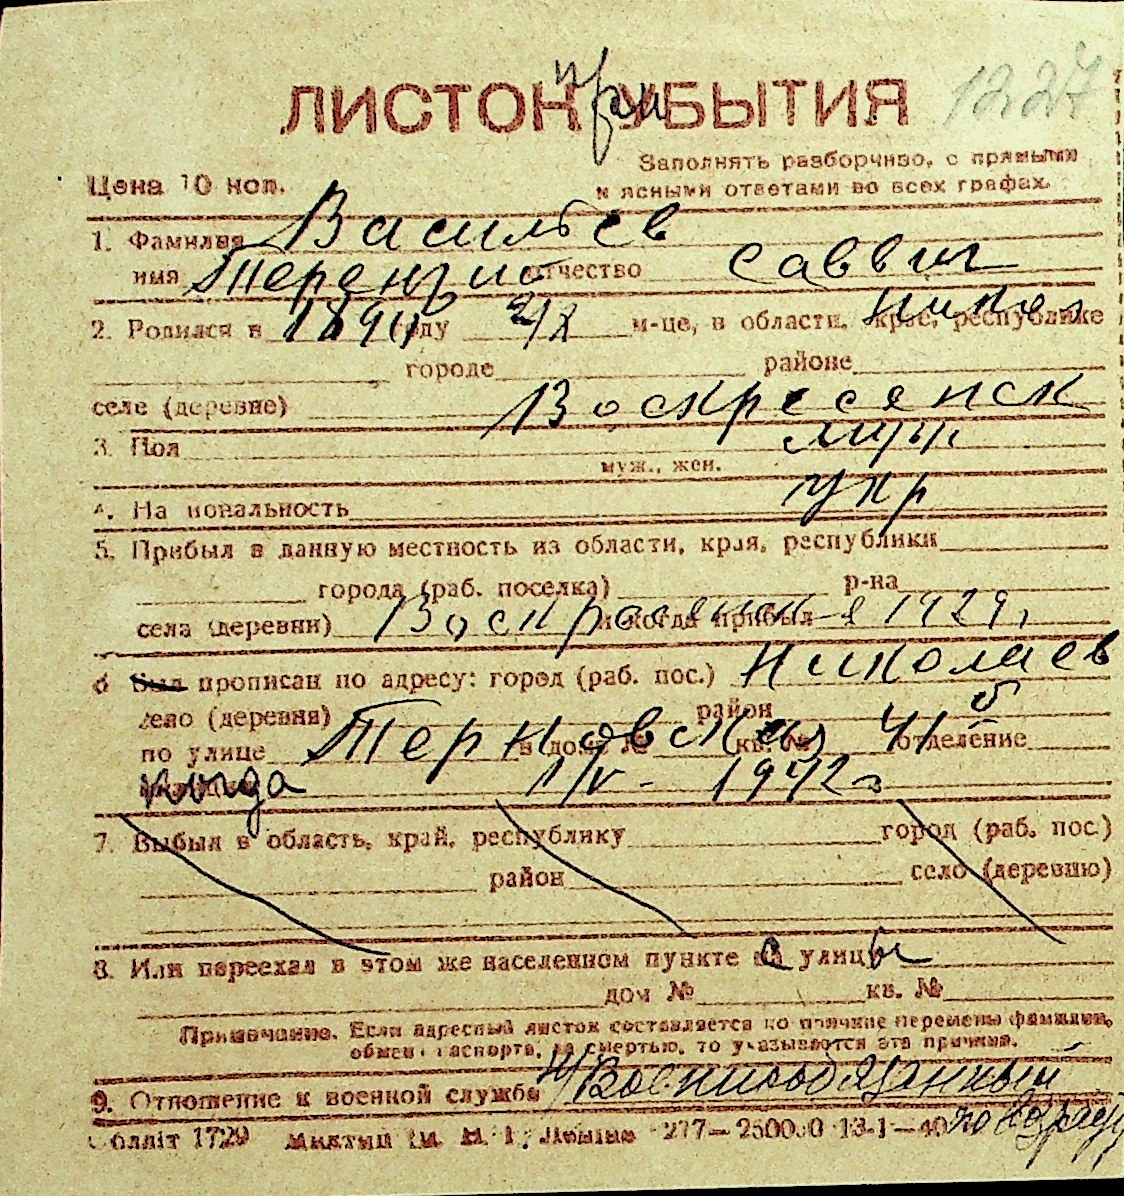 ЛИСТОК при УБЫТИЯ 1227
Заполнять разборчиво, с прямыми
Цена 10 коп. и ясными ответами во всех графах.
1. Фамилия Васильев
имя Терентий отчество Саввич
2. Родился в году м-це, в области, крае, республике Никол
городе районе
селе (деревне) Воскресенск
3. Пол муж
муж., жен.
4. Национальность укр
5. Прибыл в данную местность из области, края, республики
города (раб. поселка) р-на
села (деревни) Воскресенск и когда прибыл 1929
6 Был прописан по адресу: город (раб. пос.) Николаев
село (деревня) район
по улице Терновская в доме № кв. № 41 б отделение
когда 1/IV - 1942 г
7. Выбыл в область, край, республику город (раб. пос.)
район село (деревню)
8. Или переехал в этом же населенном пункте с улицы
дом № кв. №
Примечание. Если адресный листок составляется по причине перемены фамилии,
обмена паспорта, за смертью, то указывается эта причина.
9. Отношение к военной службе н/военнообязанный
Облліт 1729 277—250000 13-1—40 по возрасту